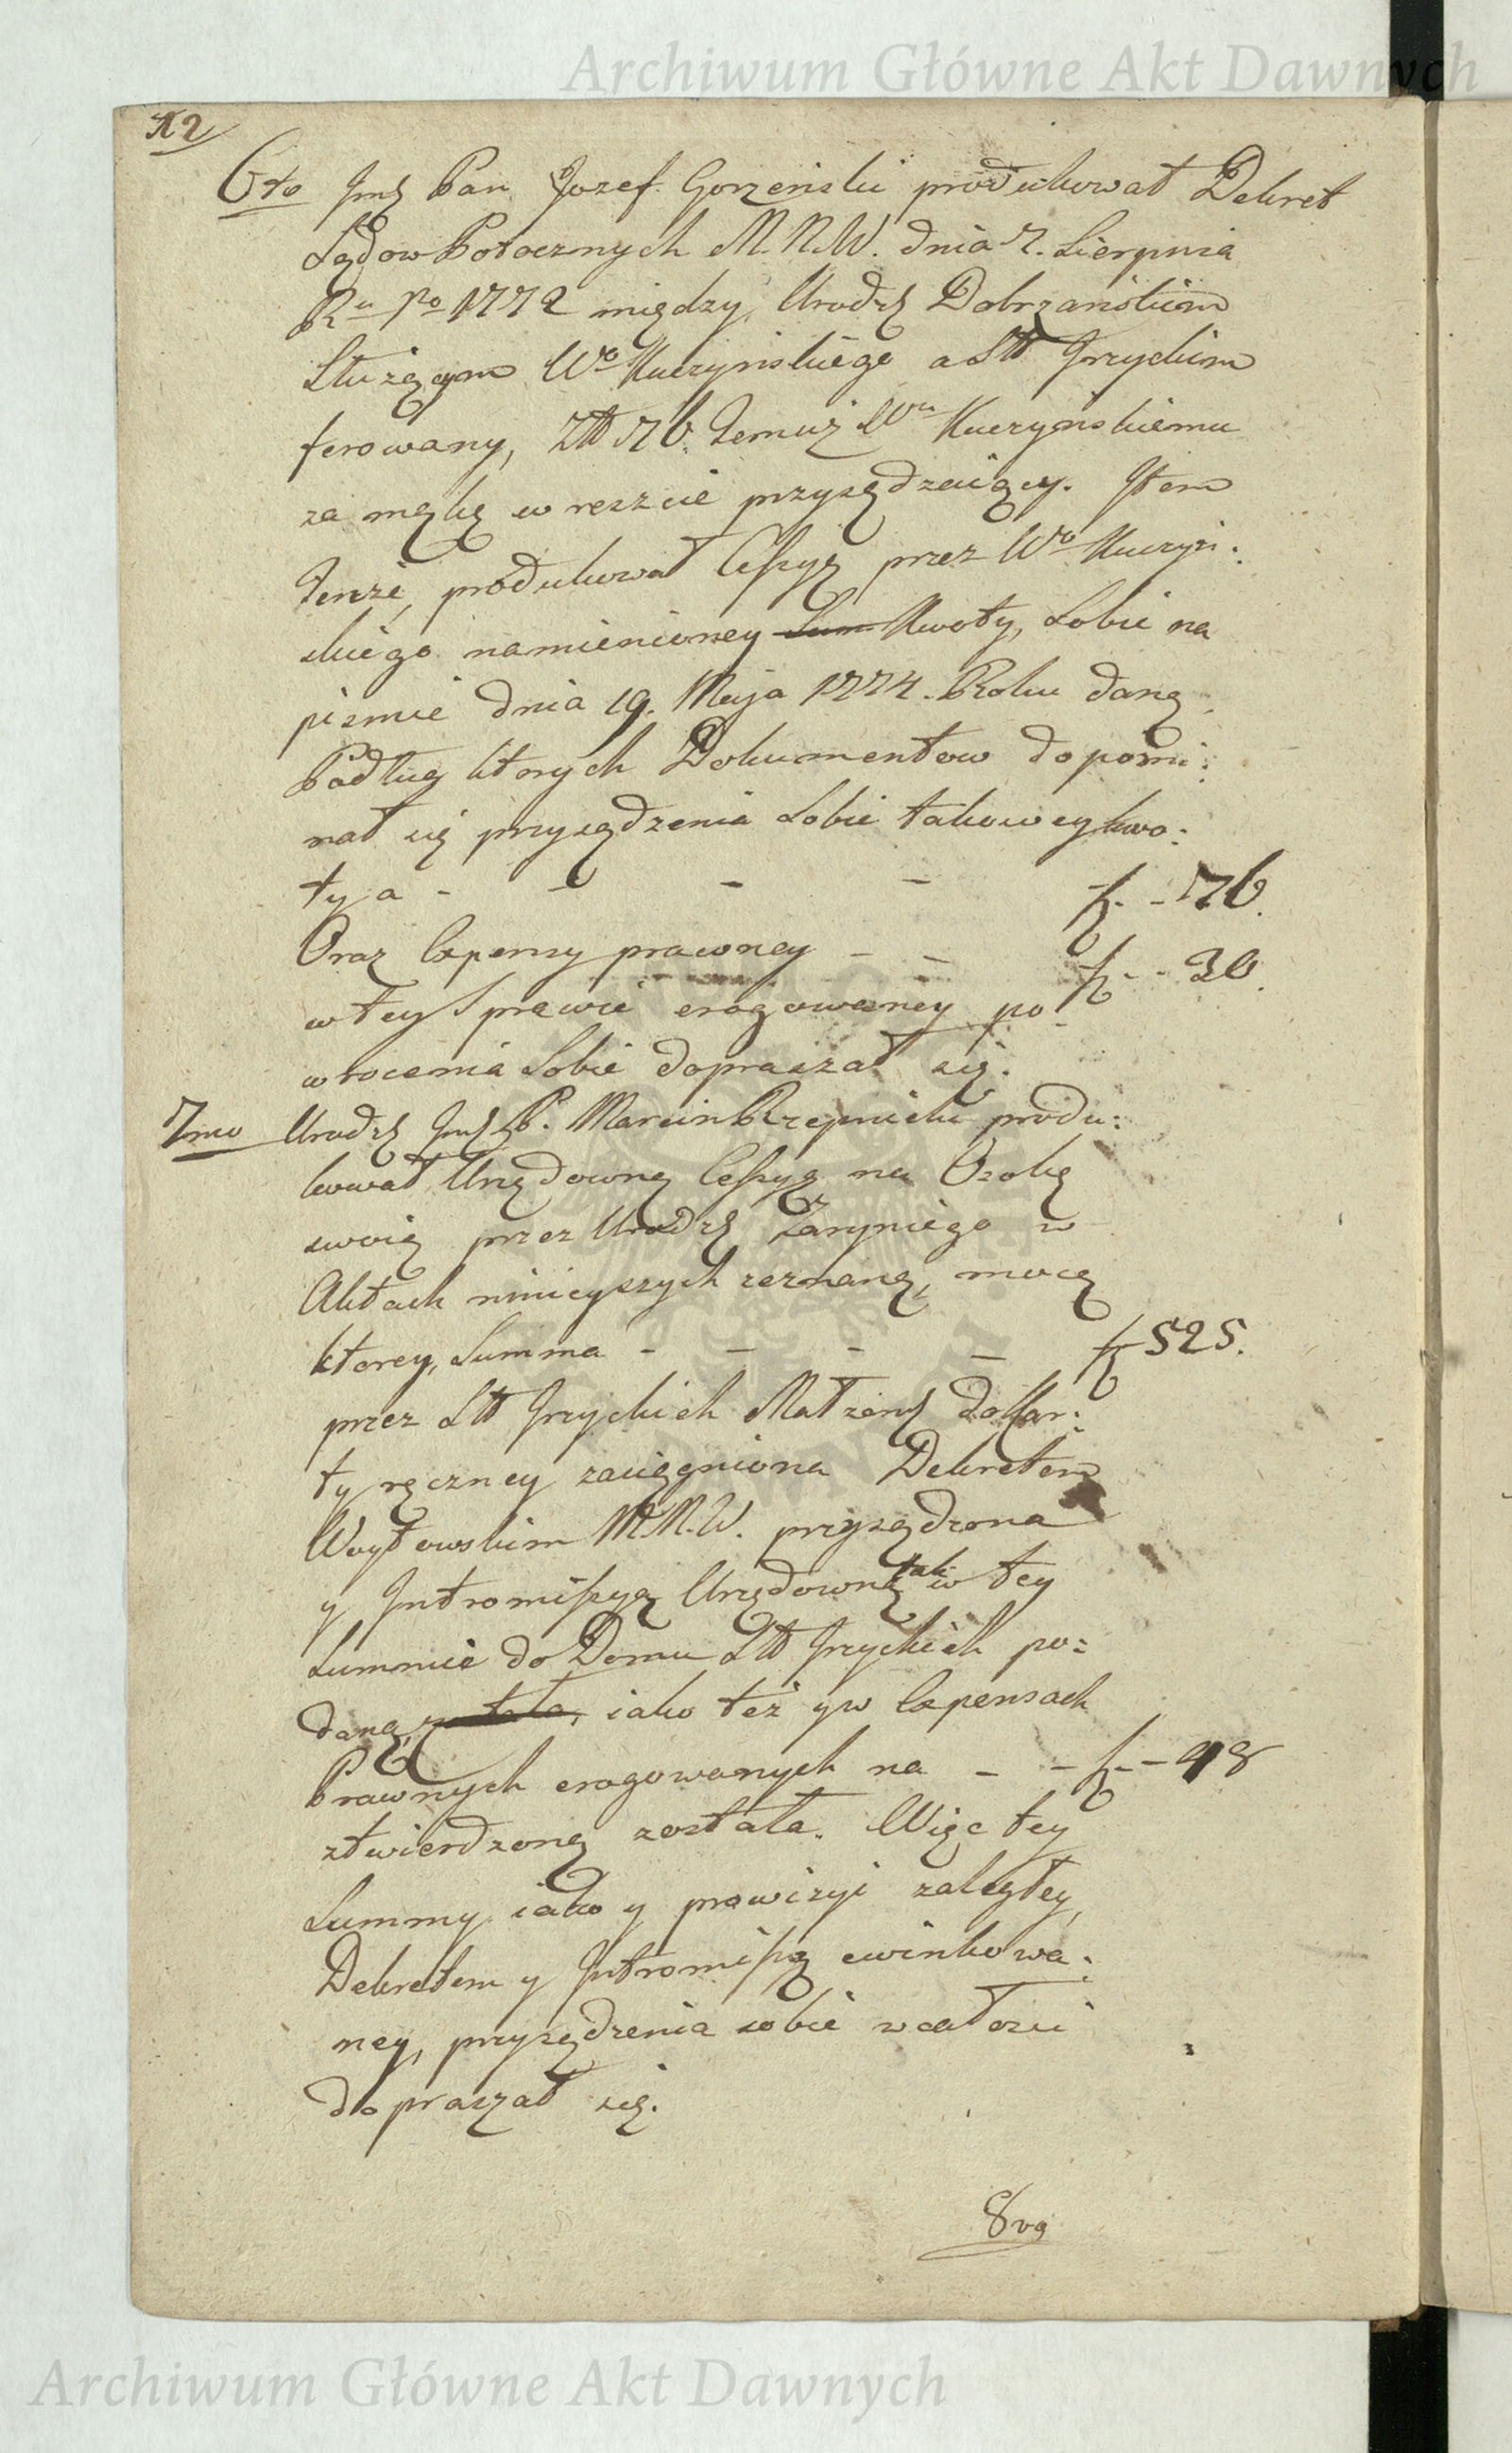 Archiwum Główne Akt Dawnych
12
6to Jmć Pan Jozef Gorzeński produkował Dekret
Sądow Potocznych M. N. W. dnia 7. Sierpnia
Ru Po 1772 między Urodz Dobrzańskiem
Służącym Wo Kuczyńskiego a Stt Jrzyckim
ferowany, Ztt 76. Temuż Wu Kuczyńskiemu
za mąkę w reszcie przysądzaiący. Item
Tenże, produkował Cessyą przez Wo Kuczyń:
skiego namienioney Sum Kwoty, Sobie na
pismie dnia 19. Maja 1774. Roku daną,
Podług ktorych Dokumentow dopomi:
nał się przysądzenia Sobie takowey kwo:
ty a - - - - f. - 76.
Oraz Expensy prawney - - f. - 30.
w tey Sprawie erogowaney po:
wrocenia Sobie dopraszał się.
7mo Urodz Jmć P. Marcin Rzepnicki produ:
kował Urzędowną Cessyą na Osobę
swoią przez Urodz Zaryniego w
Aktach ninieyszych zeznaną, mocą
ktorey, Summa - - - - f 525.
przez Stt Jrzyckich Małżonk do Kar:
ty ręczney zaciągniona Dekretem
Woytowskim M. N. W. przysądzona
y Intromissyą Urzędowną tak w tey
Summie do Domu Stt Jrzyckich po:
daną, iako też y w Expensach
Prawnych erogowanych na - - f. - 98
ztwierdzoną została. Więc tey
Summy iako y prowizyi zaległey,
Dekretem y Intromissą ewinkowa:
ney, przysądzenia sobie w całosci
dopraszał się.
8vo
Archiwum Główne Akt Dawnych